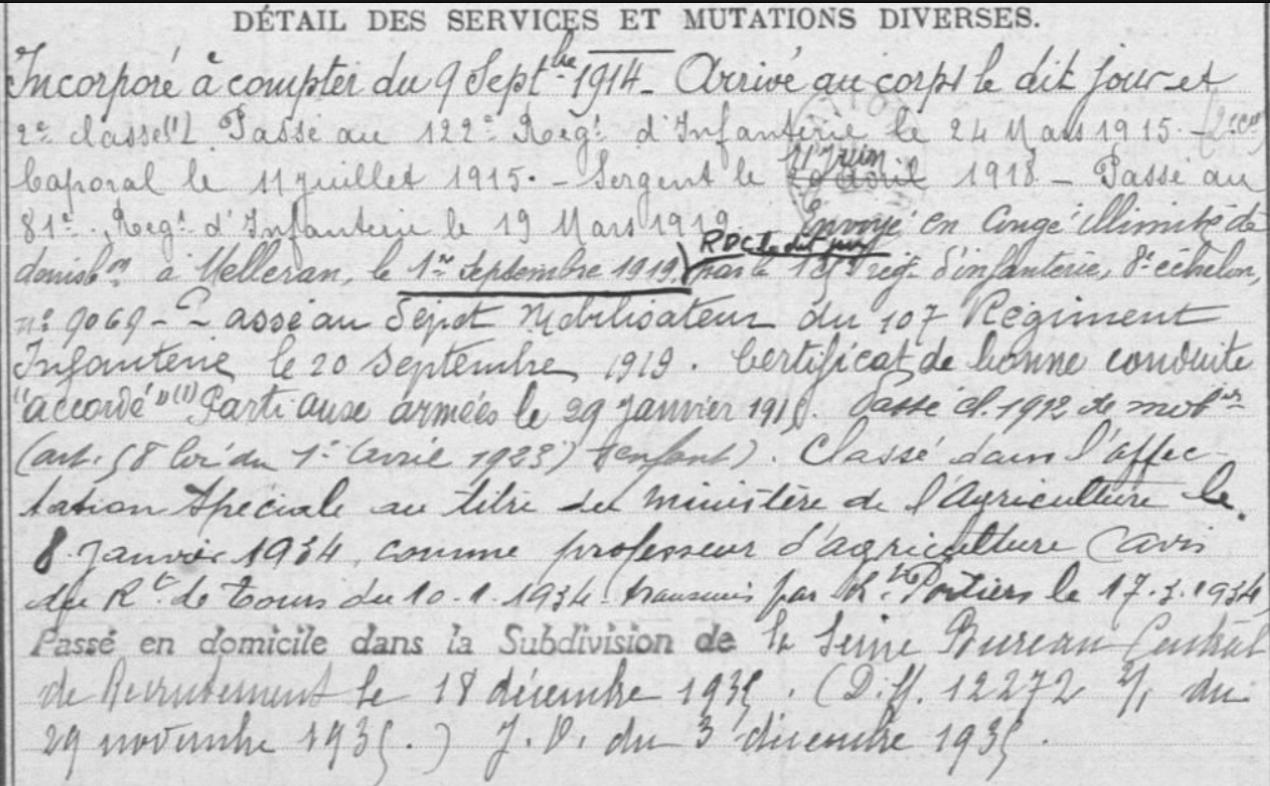 DÉTAIL DES SERVICES ET MUTATIONS DIVERSES.
Incorporé à compter du 9 Septbre 1914 - Arrivé au corps le dit jour et
2e classe (1) Passé au 122e Régt d'Infanterie le 24 Mars 1915. -
11 Juin
Caporal le 11 juillet 1915. - Sergent le 29 avril 1918 - Passé au
81e Régt d'Infanterie le 19 Mars 1919 Envoyé en congé illimité de
RDC le dit jour
démobon à Melleran, le 1er Septembre 1919, par le régt d'infanterie, 8e échelon,
n° 9069 - Passé au Dépot Mobilisateur du 107 Régiment
Infanterie le 20 Septembre 1919. Certificat de bonne conduite
"accordé" (1) Parti aux armées le 29 janvier 1915. Passé cl. 1912 de mobon
(art. 58 loi du 1er avril 1923) (enfant). Classé dans l'affec-
tation spéciale au titre du ministère de l'Agriculture le
8 Janvier 1934, comme professeur d'agriculture (avis
du Rt de Tours du 10.1.1934 transmis par Rt Poitiers le 17.3.1934
Passé en domicile dans la Subdivision de la Seine Bureau Central
de Recrutement le 18 décembre 1935. (D.ff. 12272 du
29 novembre 1935.) J.O. du 3 décembre 1935.